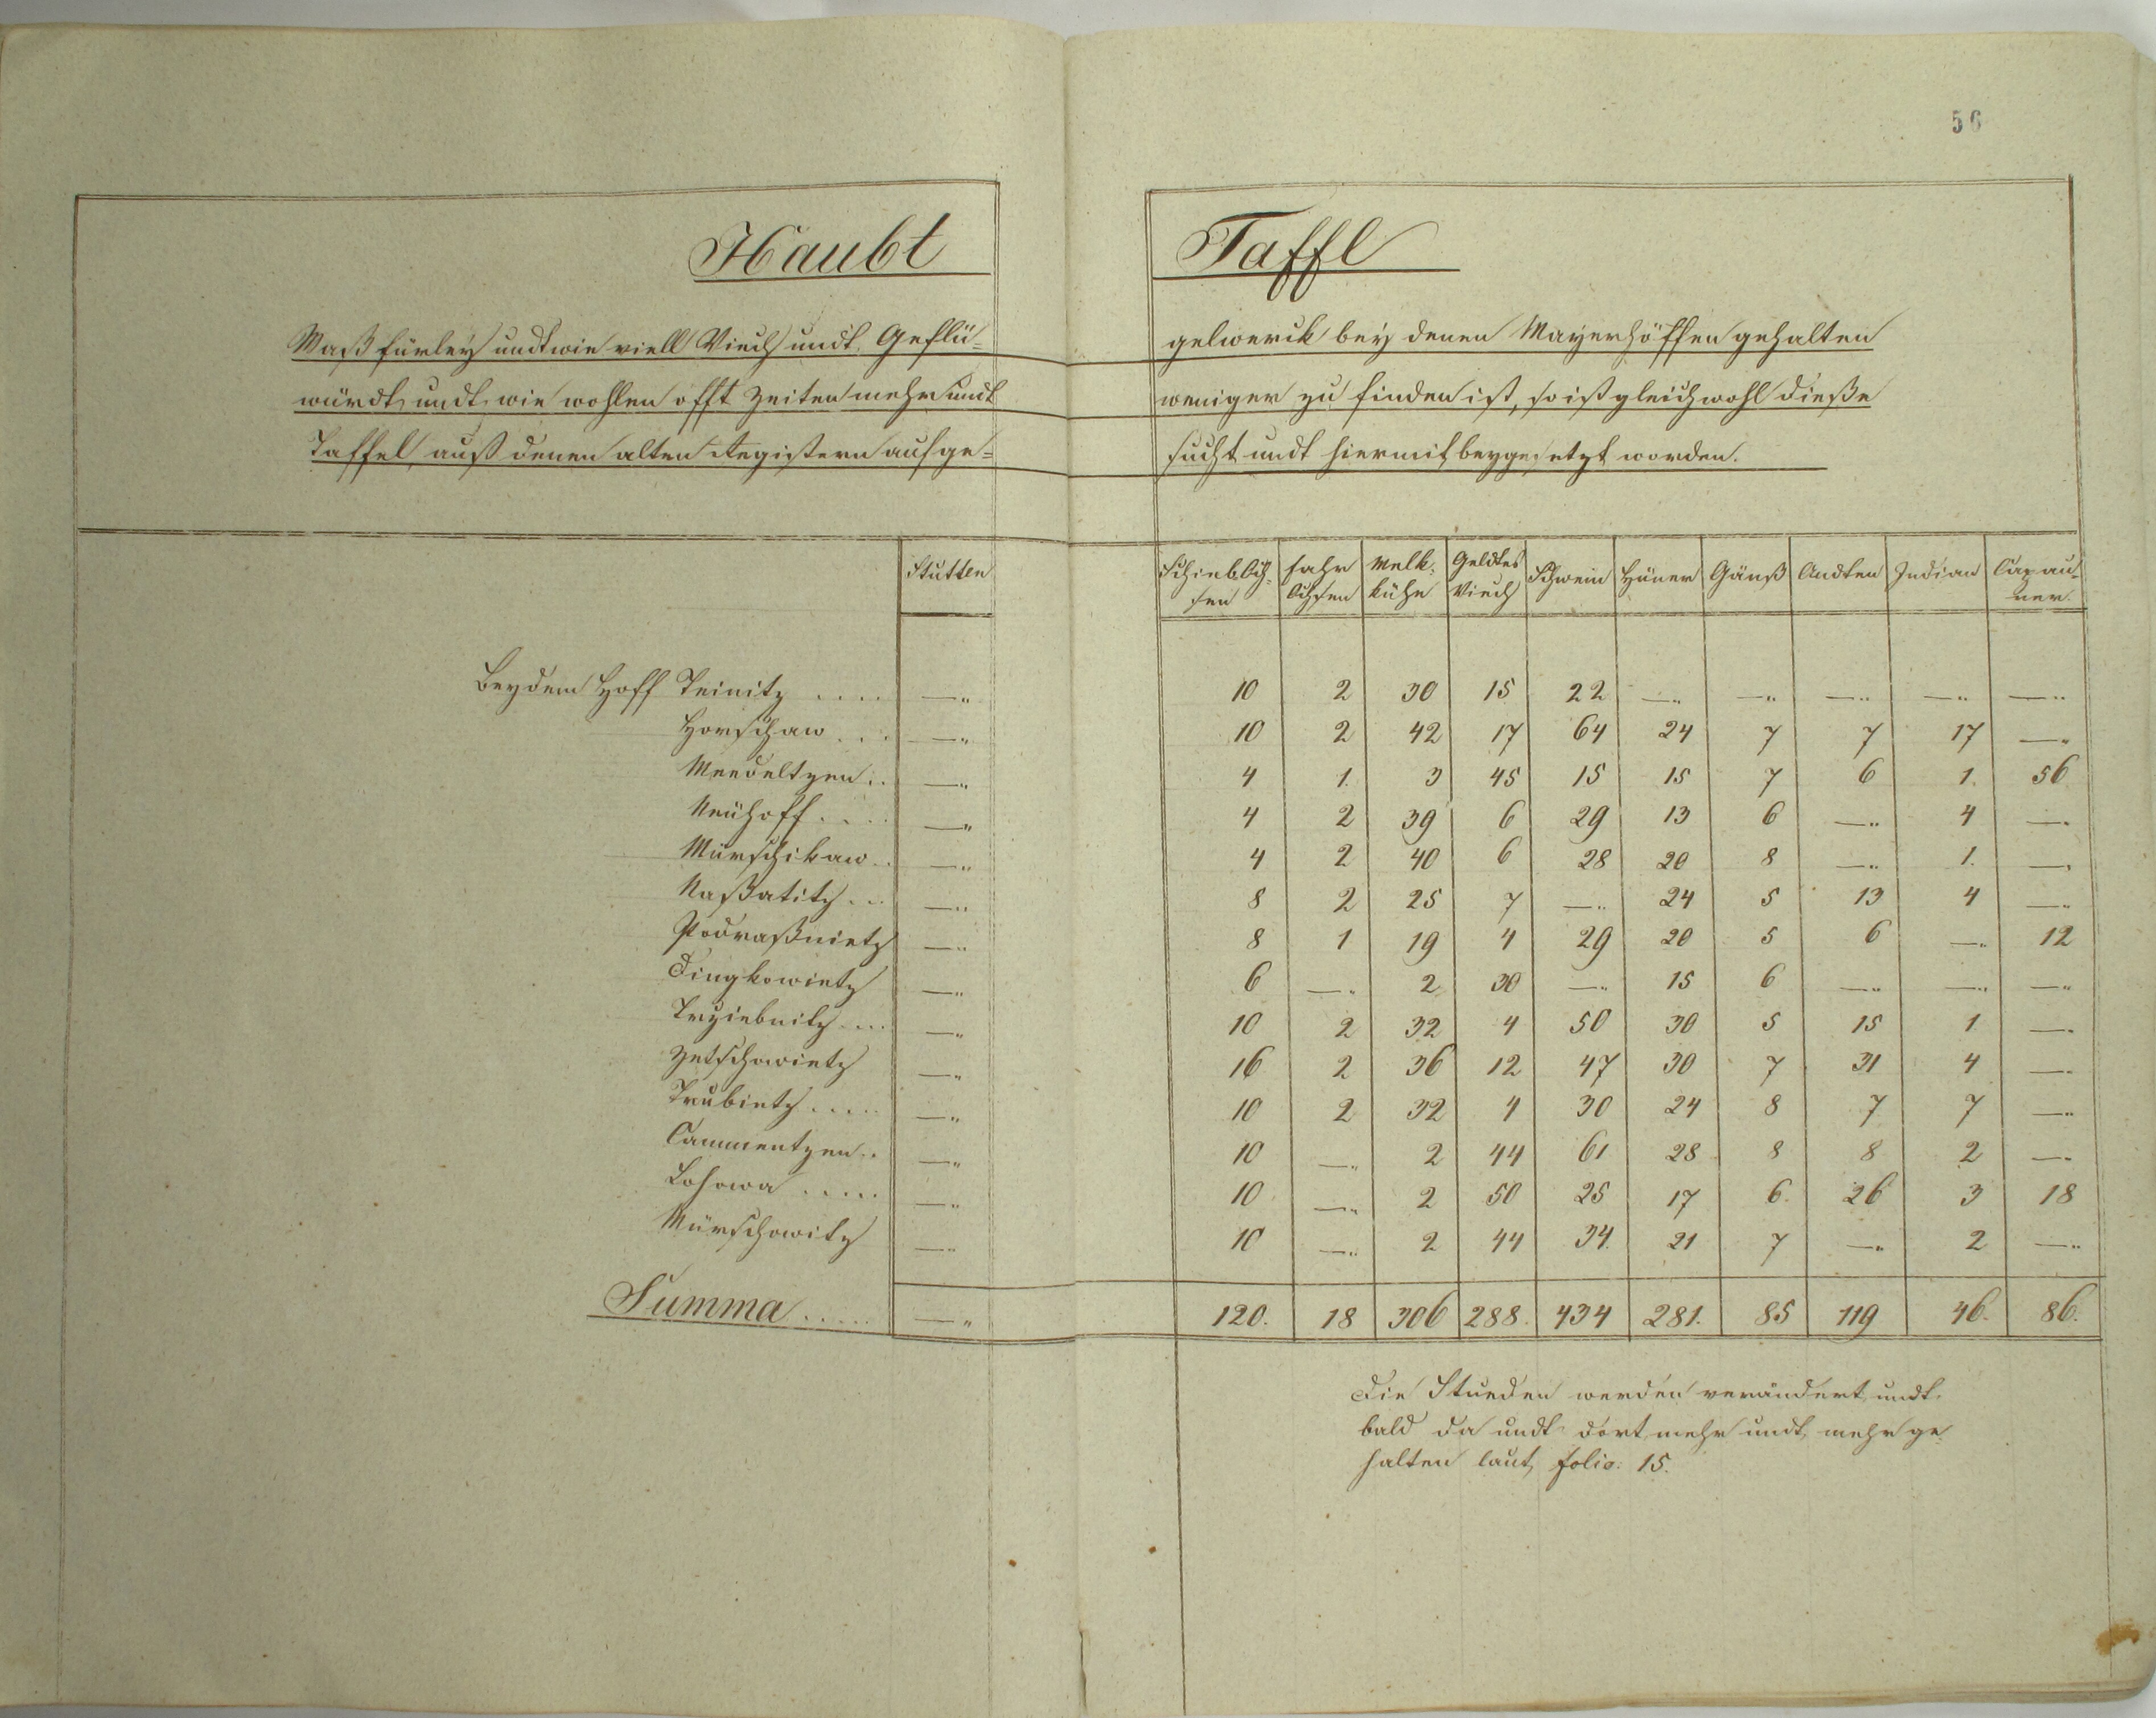 56
Haubt Taffl
Waß fürley undt wie viell Viech undt Geflü= gelwerck bey denen Mayerhöffen gehalten
würdt, undt wie wohlen offt Zeiten mehr undt weniger zu finden ist, so ist gleichwohl dieße
Taffel auß denen alten Registern aufge= sucht undt hiermit beygesetzt worden.
Stutten Schiebochsen fahr Ochsen Melk. Kühe Geldtes Viech Schwein Hüner Gänß Andten Indian Capauner.
Bey dem Hoff Teinitz .... —„ 10 2 30 15 22 —„ —„ —„ —„ —„
Horschaw ... —„ 10 2 42 17 64 24 7 7 17 —„
Meedeltzen .. —„ 4 1. 3 45 15 15 7 6 1. 56
Neühoff .... —„ 4 2 39 6 29 13 6 —„ 4 —„
Mürschikaw .. —„ 4 2 40 6 28 20 8 —„ 1. —„
Naßatitz ... —„ 8 2 25 7 —„ 24 5 13 4 —„
Podraßnietz —„ 8 1 19 4 29 20 5 6 —„ 12
Dingkowietz —„ 6 —„ 2 30 —„ 15 6 —„ —„ —„
Trziebnitz .... —„ 10 2 32 4 50 30 5 15 1 —„
Zetschowietz —„ 16 2 36 12 47 30 7 31 4 —„
Trubietz ..... —„ 10 2 32 4 30 24 8 7 7 —„
Cammentzen .. —„ 10 —„ 2 44 61 28 8 8 2 —„
Lohowa ..... —„ 10 —„ 2 50 25 17 6. 26 3 18
Mürschowitz —„ 10 —„ 2 44 34. 21 7 —„ 2 —„
Summa ..... —„ 120. 18 306 288. 434 281. 85 119 46. 86.
Die Stueden werden verändert undt
bald da undt dort mehr undt mehr ge=
halten laut folio: 15.